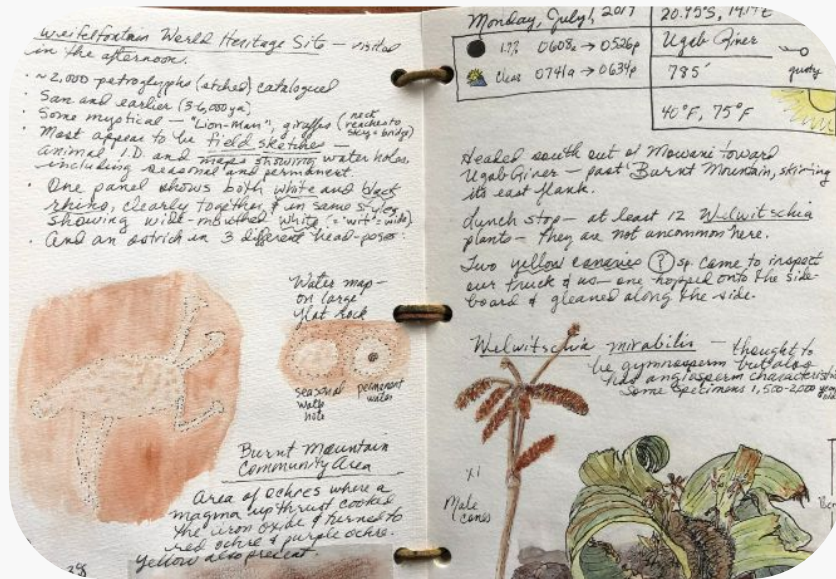 Tweifelfontein World Heritage Site — visited
in the afternoon.
· ~ 2,000 petroglyphs (etched) catalogued
· San and earlier (5-6,000 ya)
· Some mystical — "Lion-Man", giraffes (neck
reaches to
sky = bridge)
· Most appear to be field sketches —
animal I.D. and maps showing water holes,
including seasonal and permanent.
· One panel shows both white and black
rhino, clearly together, & in same style,
showing wide-mouthed white ("wit" = wide)
· And an ostrich in 3 different head-poses.
Water map —
on large
flat rock
seasonal
water
hole
permanent
water
Burnt Mountain
Community Area
Area of ochres where a
magma upthrust cooked
the iron oxide & turned to
red ochre & purple ochre.
Yellow also present.
Monday, July 1, 2019
1.7% 0608a → 0526p
Clear 0741a → 0634p
20.45°S, 14.14°E
Ugab River
785'
gusty
40°F, 75°F
Headed south out of Mowani toward
Ugab River — past Burnt Mountain, skirting
its east flank.
Lunch stop — at least 12 Welwitschia
plants — they are not uncommon here.
Two yellow canaries ? sp. came to inspect
our truck & us — one hopped onto the side-
board & gleaned along the side.
Welwitschia mirabilis — thought to
be gymnosperm but also
has angiosperm characteristics
Some specimens 1,500-2,000 years
old
x1
Male
cones